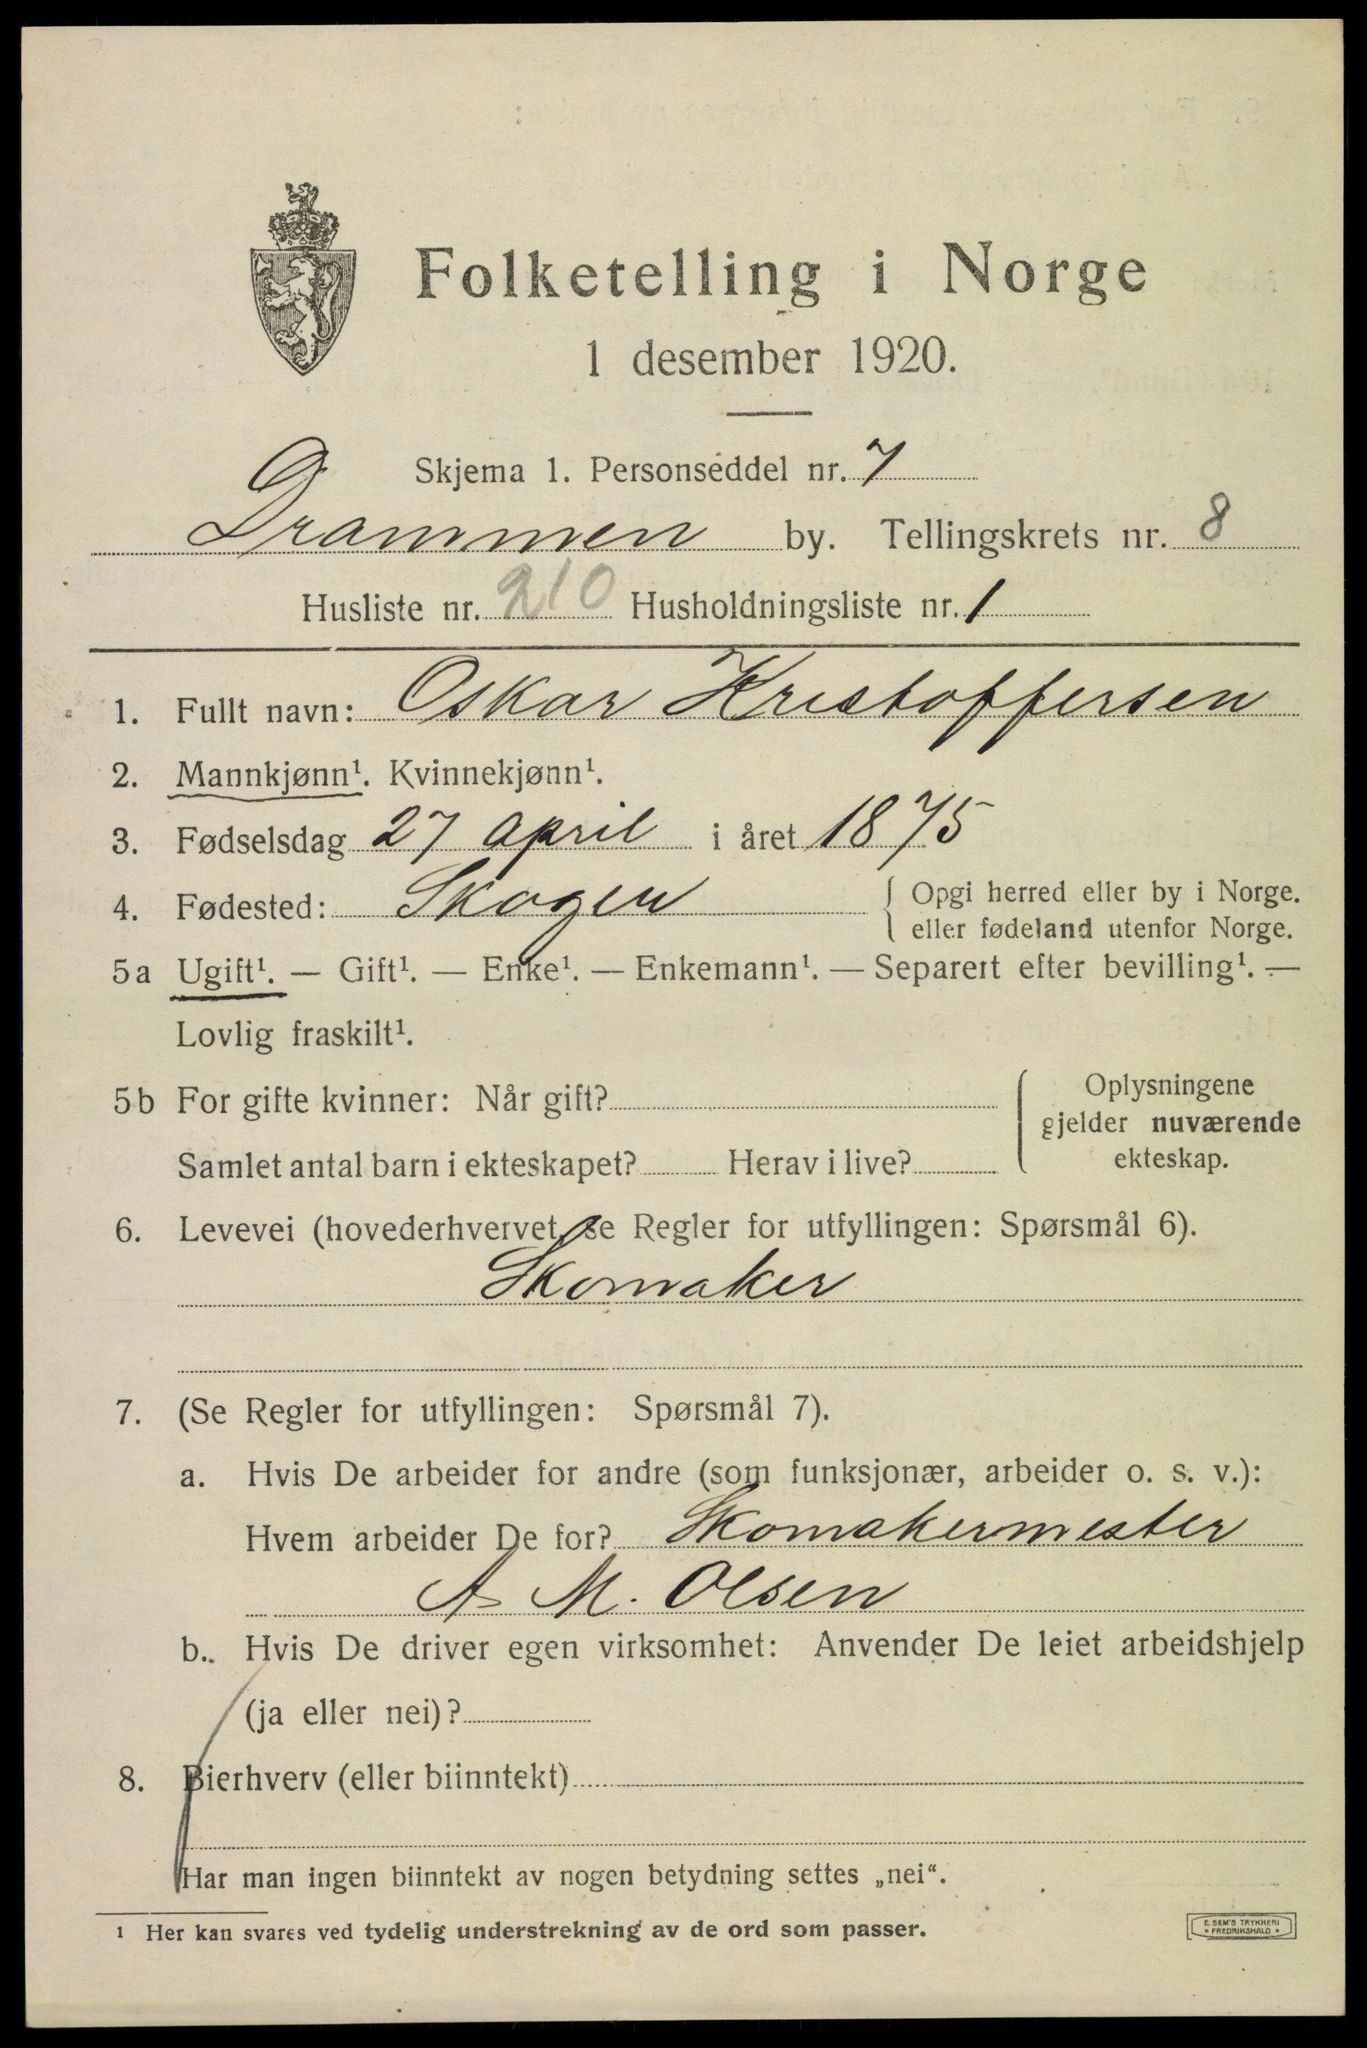 Folketelling i Norge
1 desember 1920.
Skjema 1. Personseddel nr. 7
Drammen by. Tellingskrets nr. 8
Husliste nr. 210 Husholdningsliste nr. 1
1. Fullt navn: Oskar Kristoffersen
2. Mannkjønn¹. Kvinnekjønn¹.
3. Fødselsdag 27 april i året 1875
4. Fødested: Skogen { Opgi herred eller by i Norge.
eller fødeland utenfor Norge.
5a Ugift¹. — Gift¹. — Enke¹. — Enkemann¹. — Separert efter bevilling¹. —
Lovlig fraskilt¹.
5b For gifte kvinner: Når gift?
Samlet antal barn i ekteskapet? Herav i live?
Oplysningene
gjelder nuværende
ekteskap.
6. Levevei (hovederhvervet, se Regler for utfyllingen: Spørsmål 6).
Skomaker
7. (Se Regler for utfyllingen: Spørsmål 7).
a. Hvis De arbeider for andre (som funksjonær, arbeider o. s. v.):
Hvem arbeider De for? Skomakermester
A M. Olsen
b. Hvis De driver egen virksomhet: Anvender De leiet arbeidshjelp
(ja eller nei)?
8. Bierhverv (eller biinntekt)
Har man ingen biinntekt av nogen betydning settes „nei“.
¹ Her kan svares ved tydelig understrekning av de ord som passer.
E. SEM'S TRYKKERI
* FREDRIKSHALD *